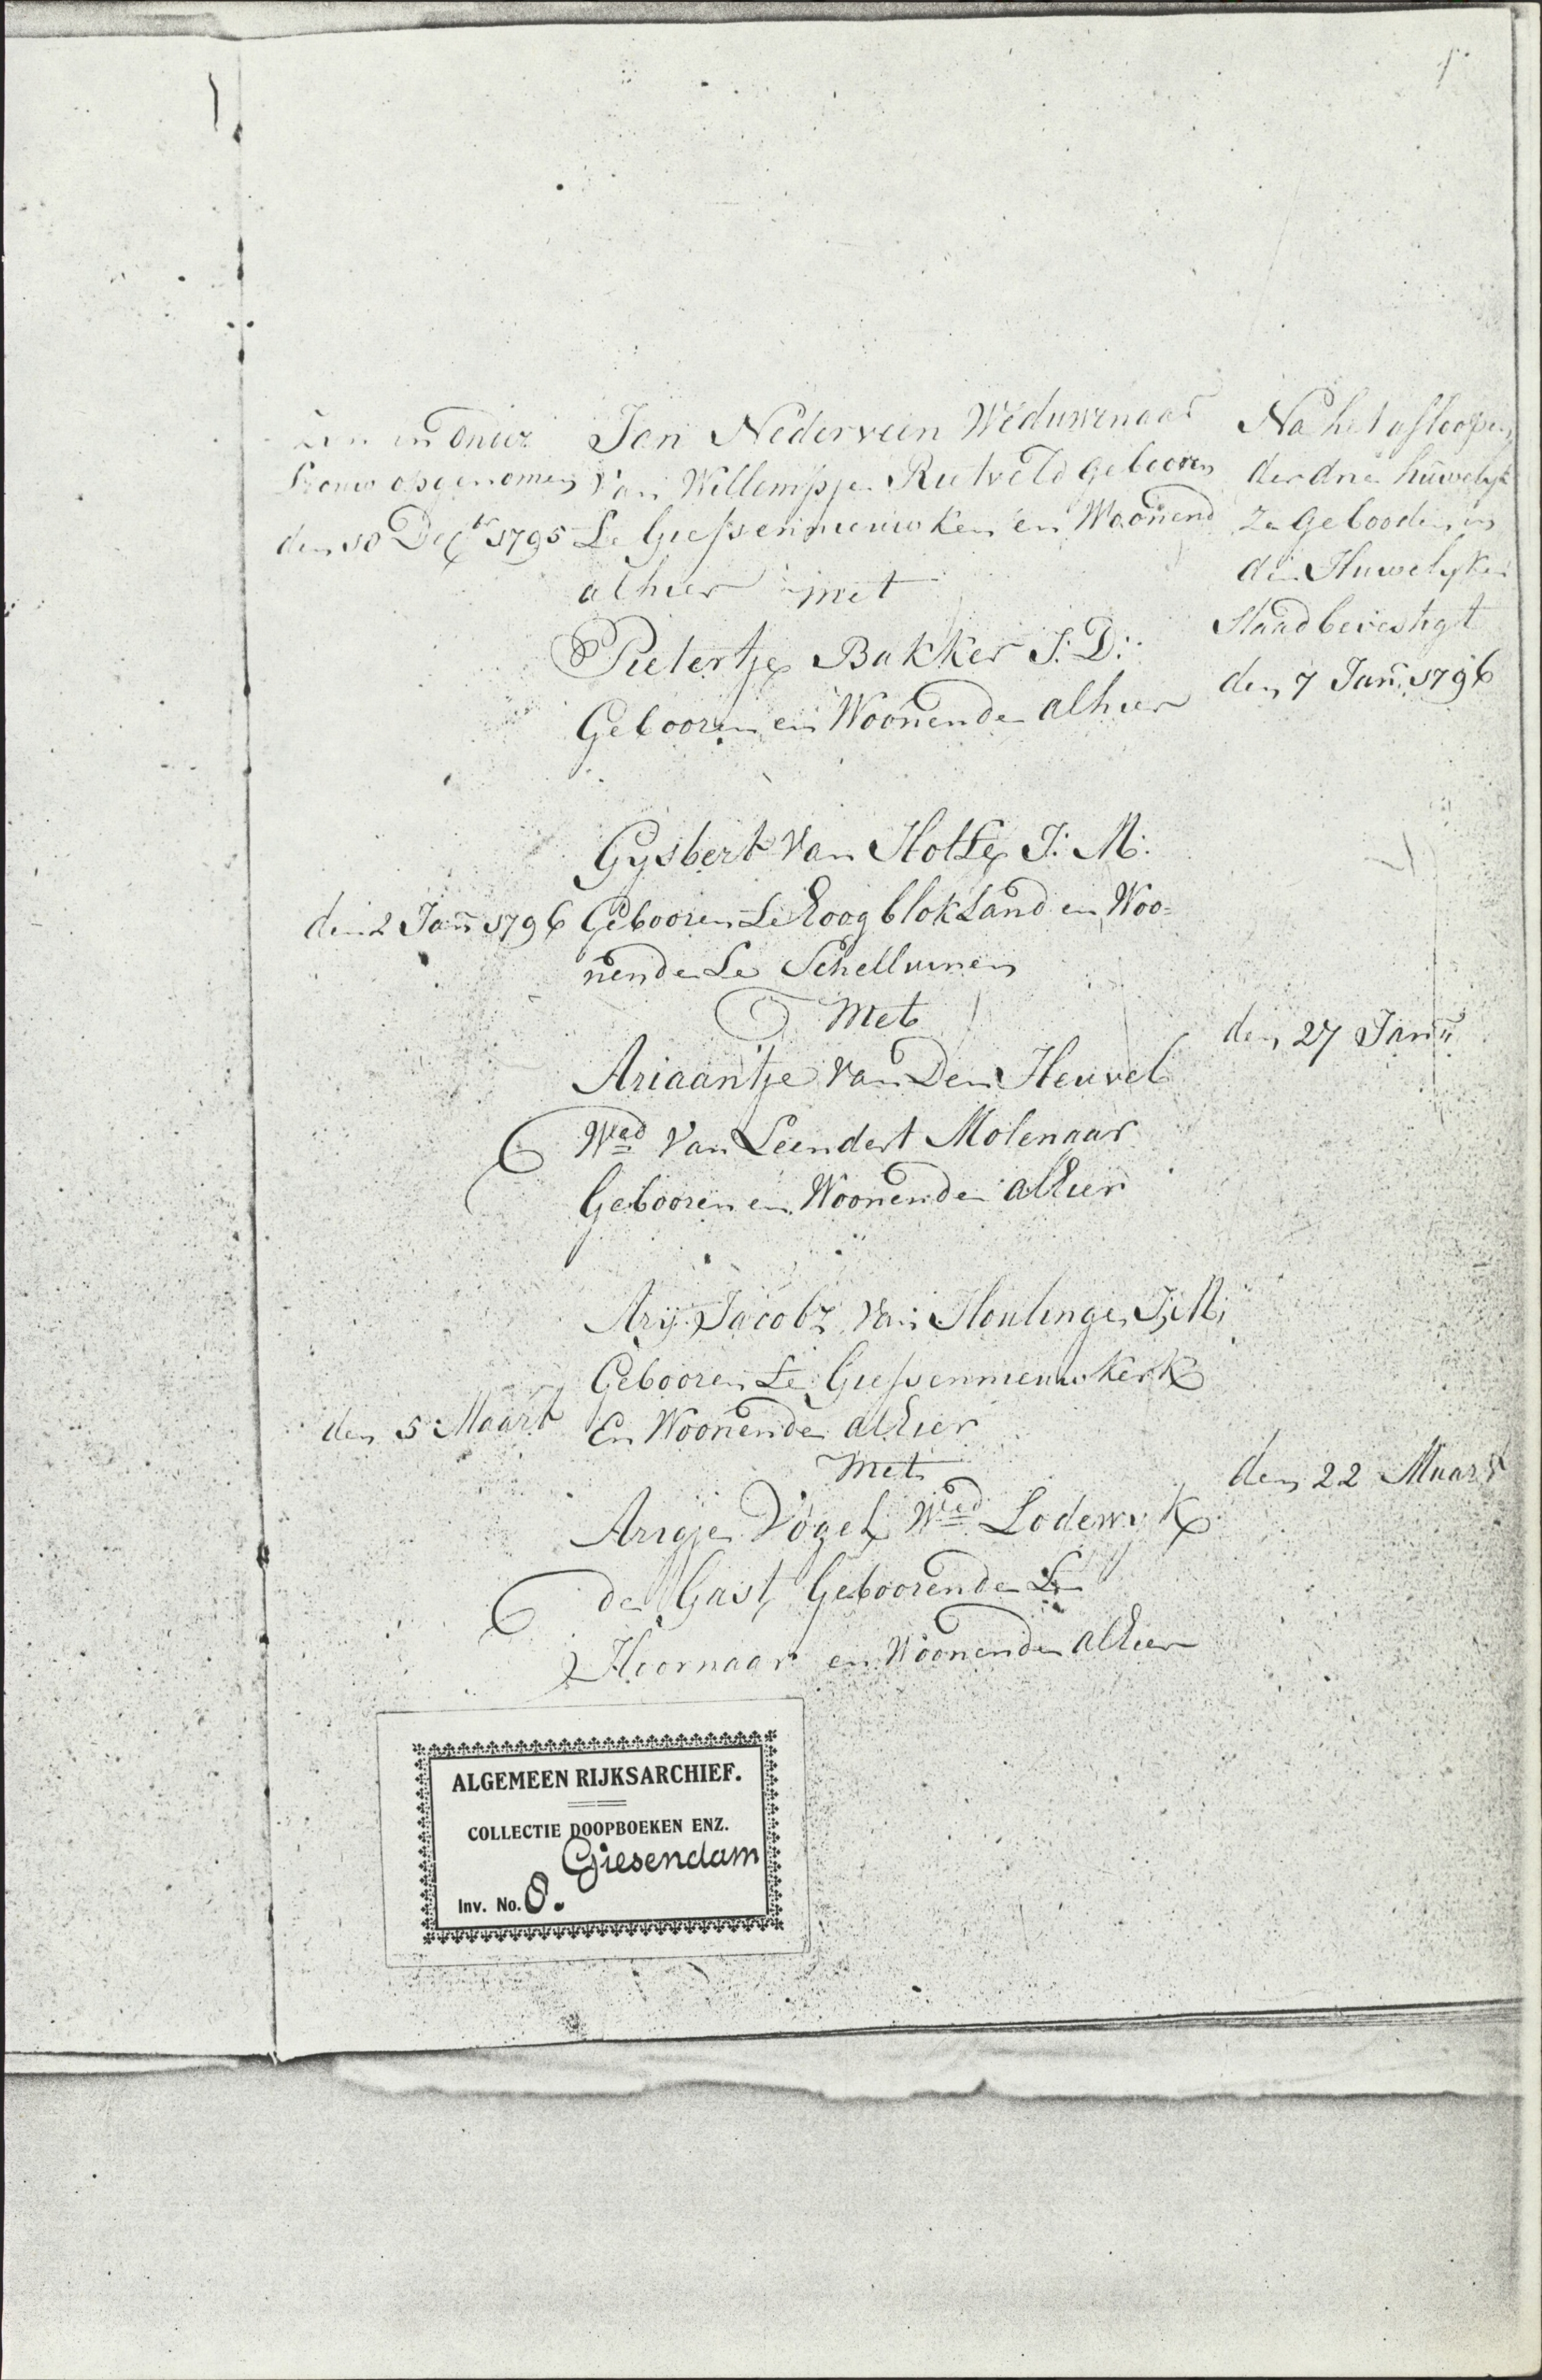 1.
Zyn in Ondertrouw opgenomen
den 18 Decbr 1795
Jan Nederveen Weduwenaar
van Willempje Rietveld gebooren
te Giessennieuwkerk en Woonend
alhier met
Pietertje Bakker J: D:
Gebooren en Woonende alhier
Na het afloopen
der drie huwelyk
ze gebooden in
den Huwelyken
Staad bevestigt
den 7 Jan: 1796
Gysbert Van J: M:
den 2 Jan: 1796
Gebooren te Hoogblokland en Woo=
nende te Schelluinen
Met
Ariaantje Van Den Heuvel
Wed Van Leendert Molenaar
Gebooren en Woonende alhier
den 27 Jan:
Ary Jacobz van Houlinge J; M;
Gebooren te Giessennieuwkerk
den 5 Maart
En Woonende alhier
Met
Arigje Vogel Wed Lodewyk
de Gast Geboorende te
Hoornaar en Woonende alhier
den 22 Maart
ALGEMEEN RIJKSARCHIEF.
COLLECTIE DOOPBOEKEN ENZ.
Giesendam
Inv. No. 8.